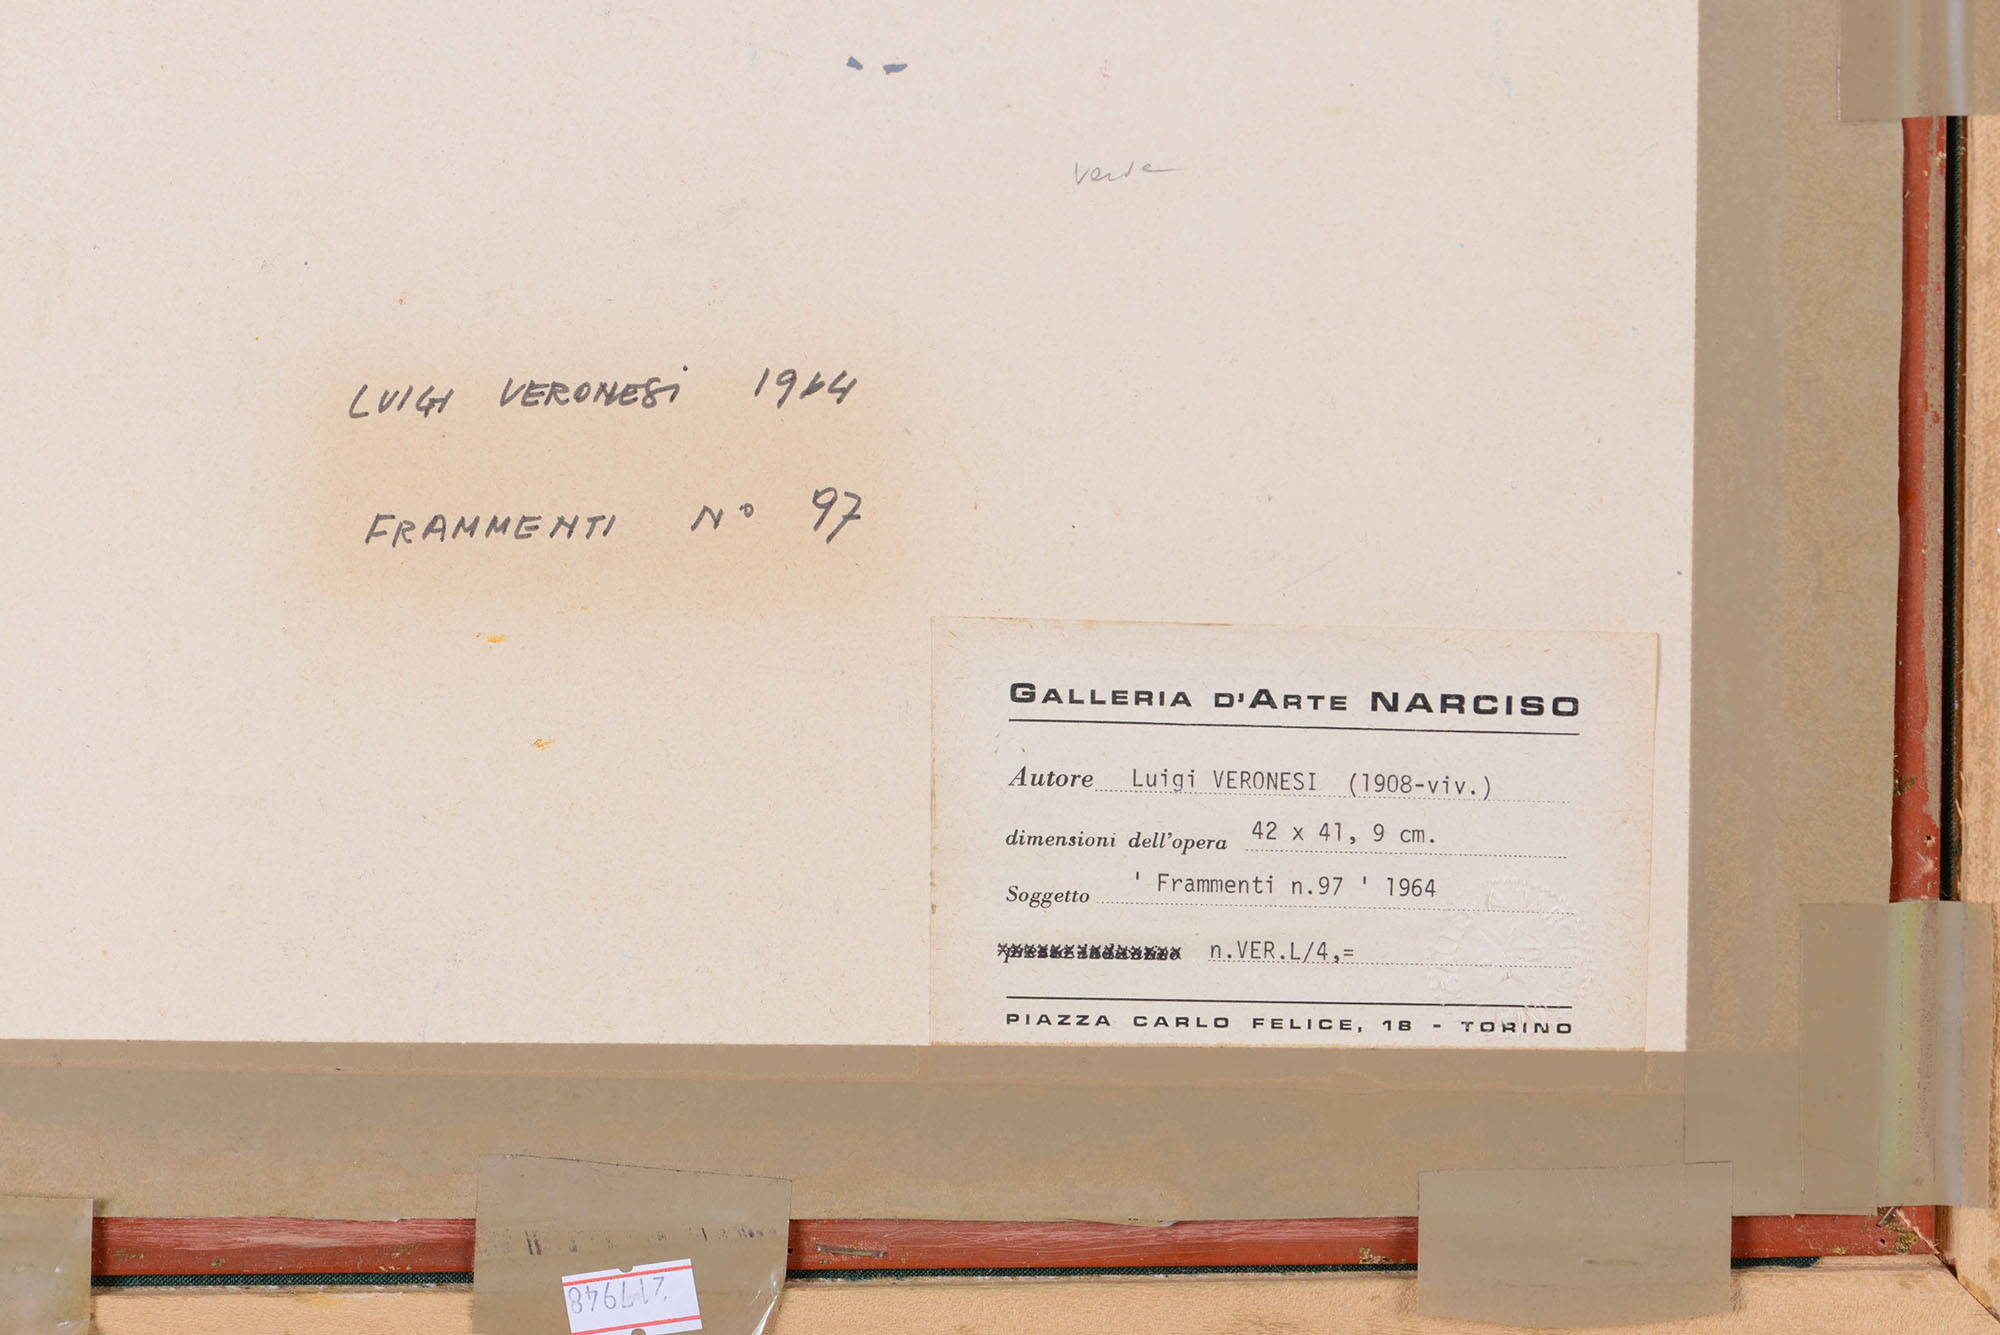 verde
LUIGI VERONESI 1964
FRAMMENTI N° 97
GALLERIA D'ARTE NARCISO
Autore Luigi VERONESI (1908-viv.)
dimensioni dell'opera 42 x 41, 9 cm.
Soggetto ' Frammenti n.97 ' 1964
n.VER.L/4,=
PIAZZA CARLO FELICE, 18 - TORINO
217948